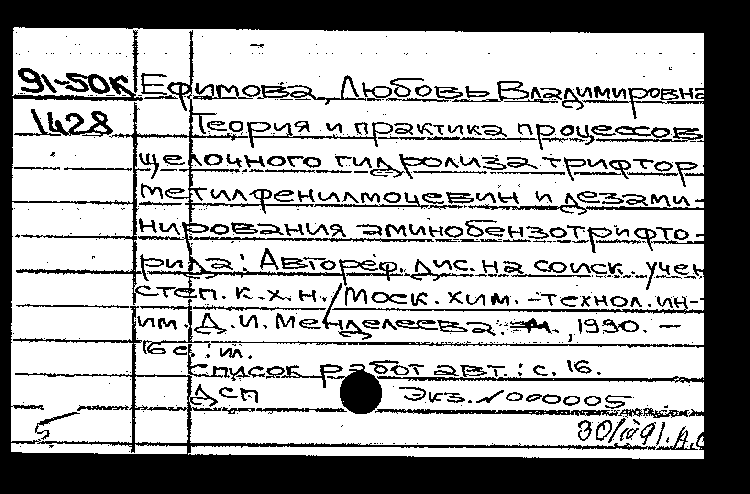 91-50К Ефимова, Любовь Владимировна
1428 Теория и практика процессов
щелочного гидролиза трифтор-
метилфенилмочевин и дезами-
нирования аминобензотрифто-
рида: Автореф. дис. на соиск. учен
степ. к.х.н. / Моск. хим.-технол. ин-т
им. Д.И. Менделеева. М., 1990. -
16 с.: ил.
список работ авт.: с. 16.
Дсп Экз. №000005
5 30/IV 91. А.